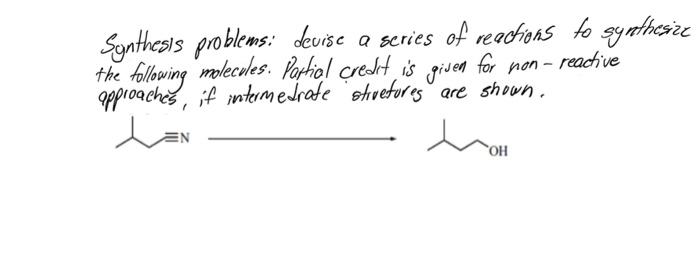 Synthesis problems: devise a series of reactions to synthesize
the following molecules. Partial credit is given for non-reactive
approaches, if intermediate structures are shown.
≡N
OH